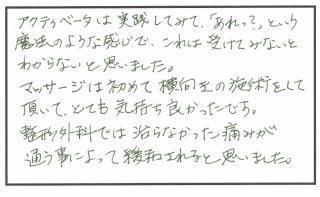 アクティベータは実践してみて、「あれっ?」という
魔法のような感じで、これは受けてみないと
わからないと思いました。
マッサージは初めて横向きの施術をして
頂いて、とても気持ち良かったです。
整形外科では治らなかった痛みが
通う事によって緩和されると思いました。